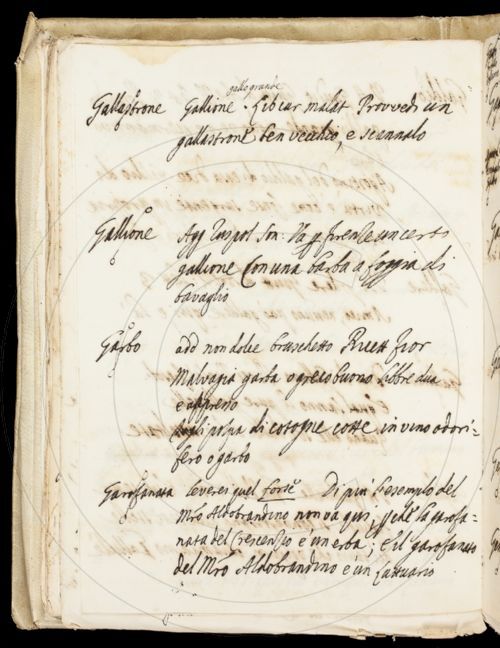 gallo grande
Gallastrone Gallione. Lib cur malat Provvedi un
gallastrone ben vecchio, e scannalo
Gallione Agg Ruspol Son: Va p firenze un certo
gallione Con una barba a foggia di
bavaglio
Garbo add non dolce bruschetto Ricett fior
Malvagia garba o greco buono libbre dua
e appresso
polpa di cotogne cotte in vino odori-
fero o garbo
Garofanata leverei quel forse Di piu l'esempio del
Mro Aldobrandino non va qui, pche la garofa-
nata del Crescenzio è un erba; e il garofanato
del Mro Aldobrandino è un lattuario